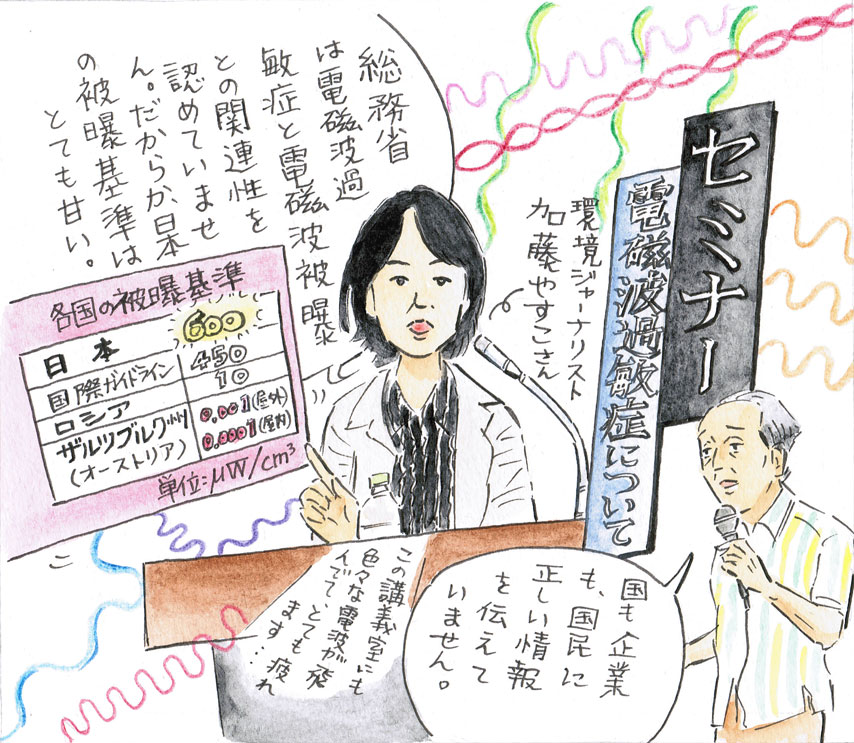 総務省
は電磁波過
敏症と電磁波被曝
との関連性を
認めていませ
ん。だからか、日本
の被曝基準は
とても甘い。
セミナー
電磁波過敏症について
環境ジャーナリスト
加藤やすこさん
各国の被曝基準
日本 600
国際ガイドライン 450
ロシア 10
ザルツブルグ州 0.001(屋外)
(オーストリア) 0.0001(屋内)
単位:μW/cm³
この講義室にも
色々な電波が飛
んでて、とても疲れ
ます…
国も企業
も、国民に
正しい情報
を伝えて
いません。